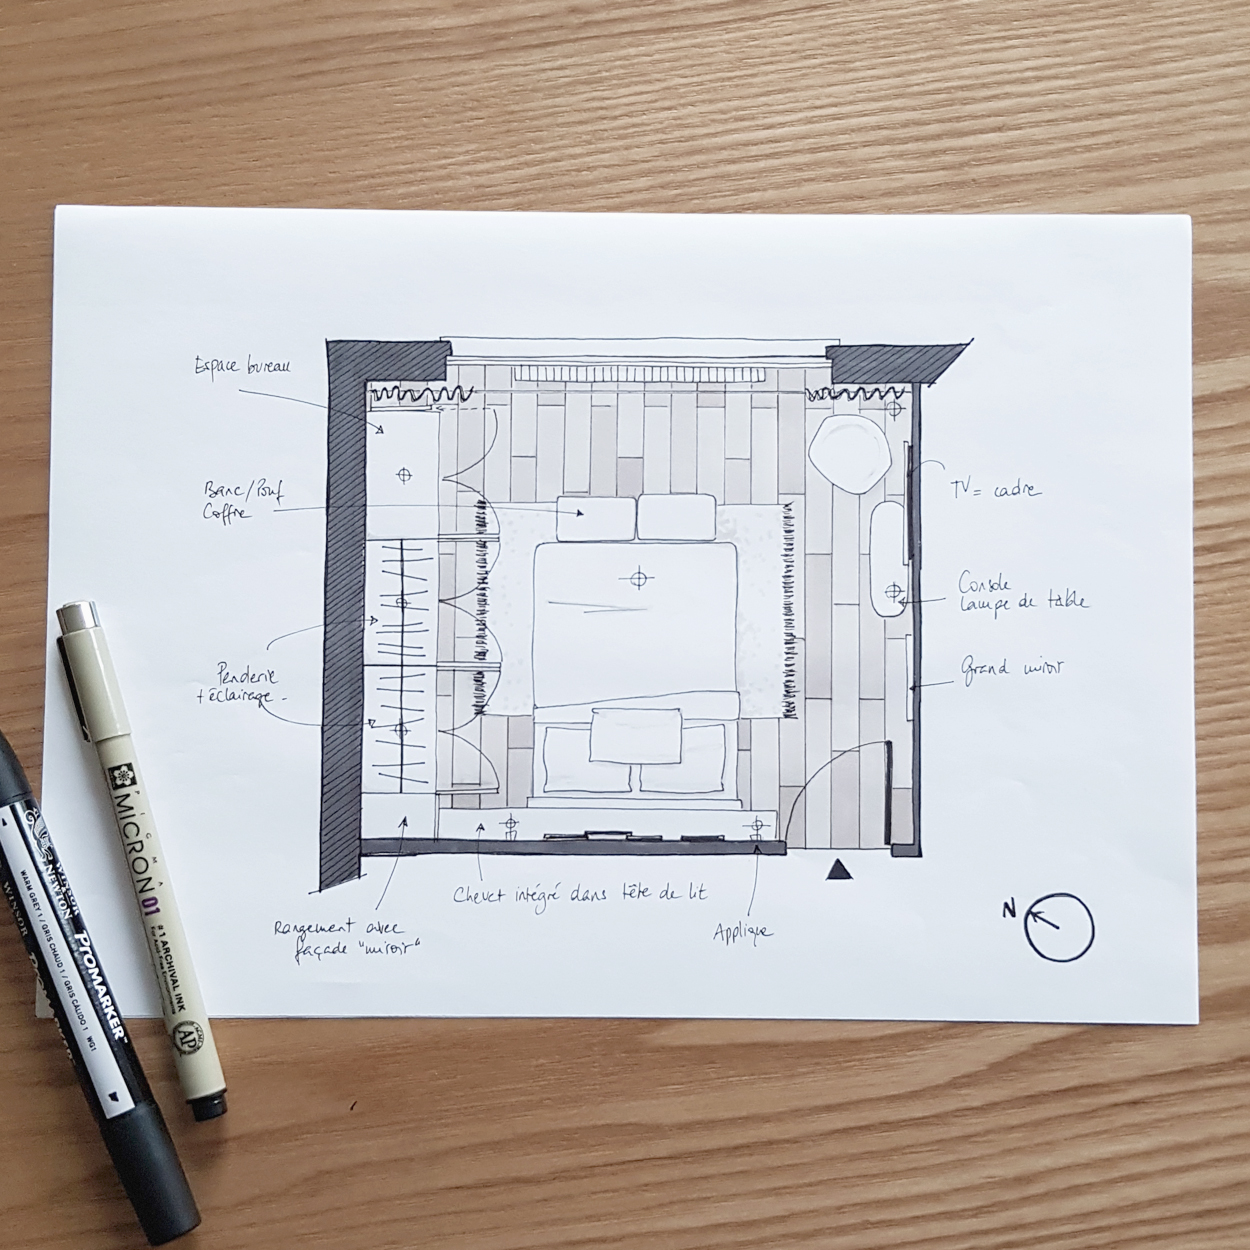 Espace bureau
Banc/Pouf
Coffre
Penderie
+ éclairage
Rangement avec
façade "miroir"
Chevet intégré dans tête de lit
Applique
TV = cadre
Console
lampe de table
Grand miroir
N
PIGMA
MICRON 01
#1 ARCHIVAL INK
AP
WINSOR
& NEWTON
PROMARKER™
WARM GREY 1 / GRIS CHAUD 1 / GRIS CÁLIDO 1 WG1
WINSOR